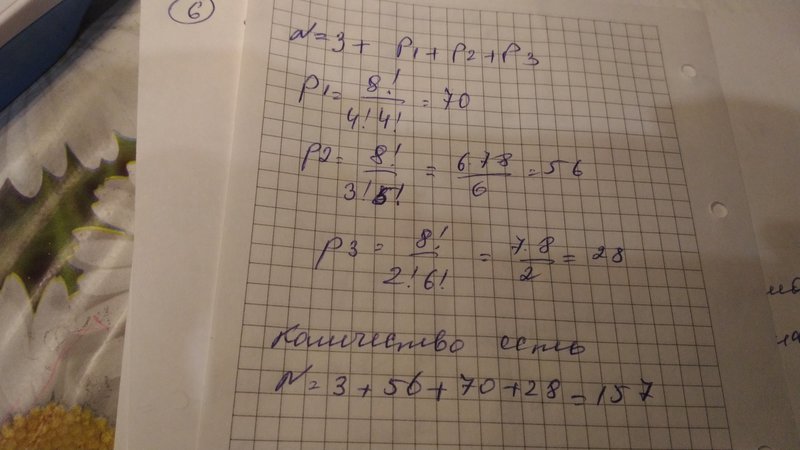 6
N=3+ P1+P2+P3
P1= 8!/4!4! = 70
P2= 8!/3!5! = 6·7·8/6 = 56
P3= 8!/2!6! = 7·8/2 = 28
Количество есть
N=3+56+70+28=157